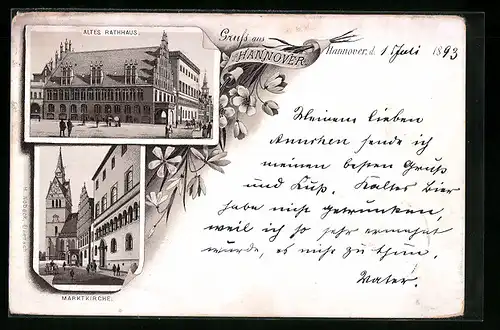 ALTES RATHHAUS.
Gruss aus
HANNOVER
Hannover, d. 1 Juli 1893
Meinem lieben
Annchen sende ich
meinen besten Gruß
und Kuß. Kaltes Bier
habe nicht getrunken,
weil ich so sehr ermahnt
wurde, es nicht zu thun.
Vater.
MARKTKIRCHE.